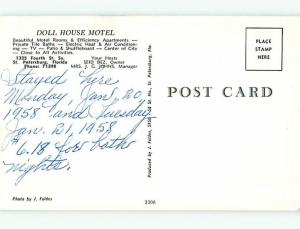 DOLL HOUSE MOTEL
Beautiful Motel Rooms & Efficiency Apartments —
Private Tile Baths — Electric Heat & Air Condition-
ing — TV — Patio & Shuffleboard — Center of City —
Close to All Activities.
1325 Fourth St. So. Your Hosts
St. Petersburg, Florida SEID BEZ, Owner
Phone: 71398 MRS. J. G. JOHNS, Manager
Stayed here
Monday, Jan. 20
1958 and Tuesday
Jan. 21, 1958
$6.18 for both
nights.
Photo by J. Faldos
Produced by J. Faldos, St. No., St. Petersburg, Fla.
PLACE
STAMP
HERE
POST CARD
2306